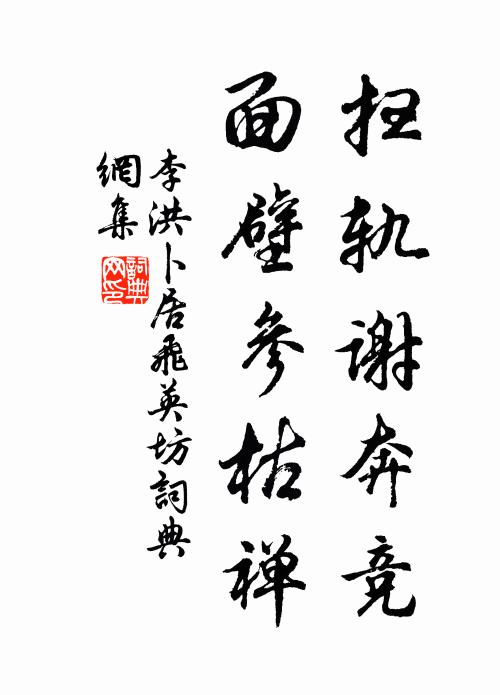 扫轨谢奔竞
面壁参枯禅
李洪卜居飛英坊詞典
網集
詞典
网印